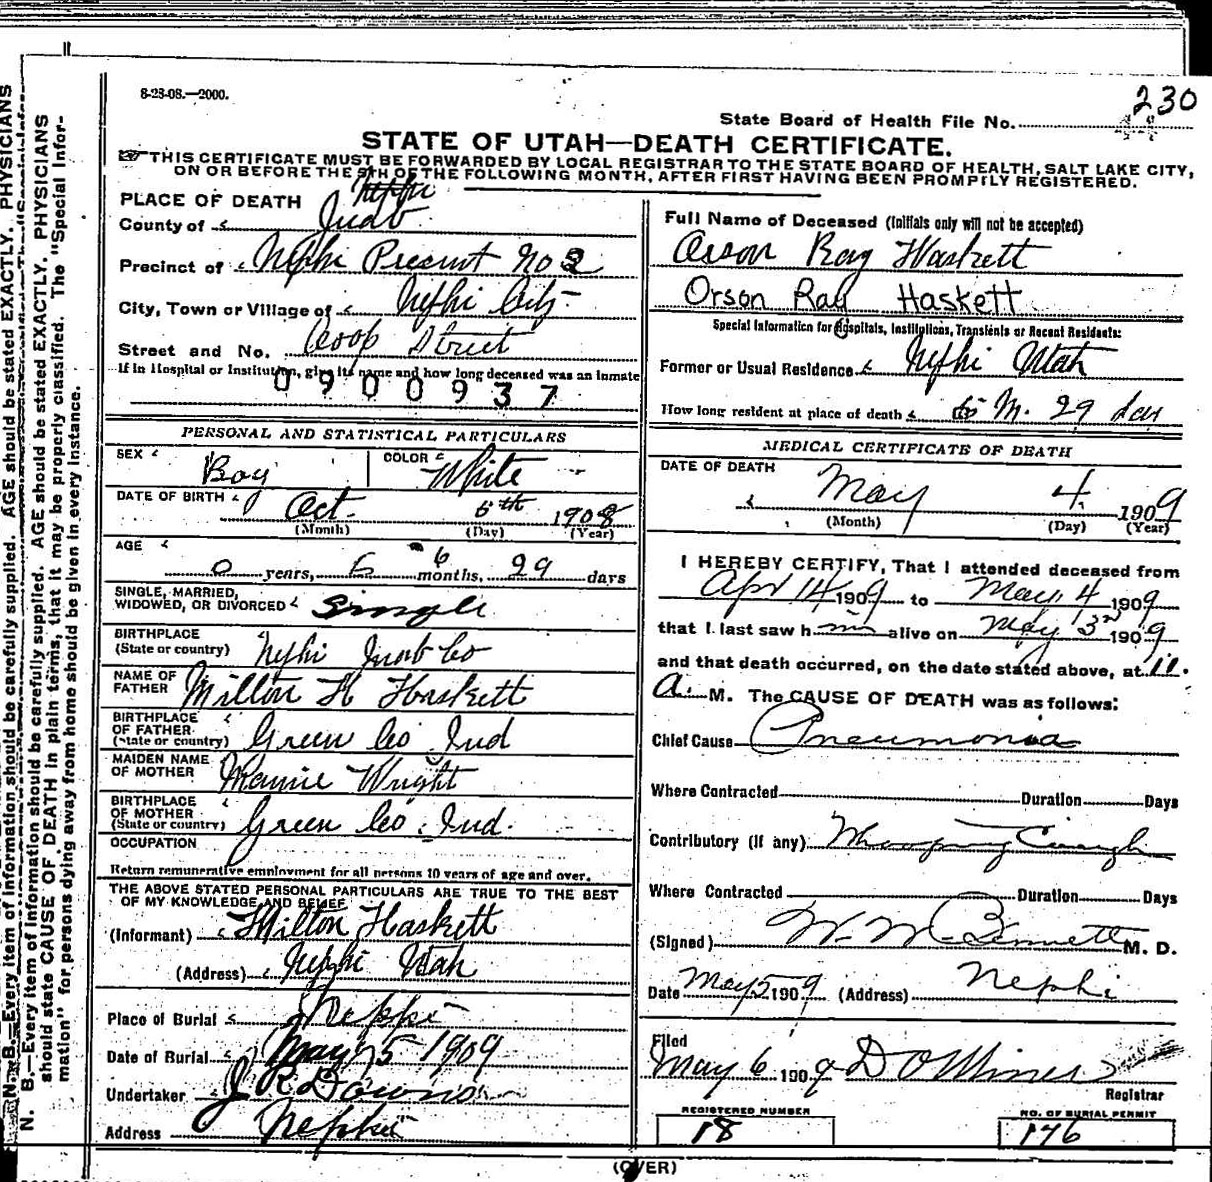 8-28-08.—2000.
230
State Board of Health File No.
STATE OF UTAH—DEATH CERTIFICATE.
THIS CERTIFICATE MUST BE FORWARDED BY LOCAL REGISTRAR TO THE STATE BOARD OF HEALTH, SALT LAKE CITY,
ON OR BEFORE THE 5TH OF THE FOLLOWING MONTH, AFTER FIRST HAVING BEEN PROMPTLY REGISTERED.
PLACE OF DEATH Nephi
County of Juab
Precinct of Nephi Precinct No 2
City, Town or Village of Nephi City
Street and No. Coop Street
If in Hospital or Institution, give its name and how long deceased was an inmate
0900937
PERSONAL AND STATISTICAL PARTICULARS
SEX Boy COLOR White
DATE OF BIRTH Oct. 5th 1908
(Month) (Day) (Year)
AGE 0 years, 6 6 months, 29 days
SINGLE, MARRIED,
WIDOWED, OR DIVORCED Single
BIRTHPLACE
(State or country) Nephi Juab Co
NAME OF
FATHER Milton H Haskett
BIRTHPLACE
OF FATHER
(State or country) Green Co Ind
MAIDEN NAME
OF MOTHER Mamie Wright
BIRTHPLACE
OF MOTHER
(State or country) Green Co. Ind.
OCCUPATION
Return remunerative employment for all persons 10 years of age and over.
THE ABOVE STATED PERSONAL PARTICULARS ARE TRUE TO THE BEST
OF MY KNOWLEDGE AND BELIEF
(Informant) Milton Haskett
(Address) Nephi Utah
Place of Burial Nephi
Date of Burial May 5 1909
Undertaker J R Downs
Address Nephi
Full Name of Deceased (Initials only will not be accepted)
Orson Ray Haskett
Orson Ray Haskett
Special Information for Hospitals, Institutions, Transients or Recent Residents:
Former or Usual Residence Nephi Utah
How long resident at place of death 6 M. 29 day
MEDICAL CERTIFICATE OF DEATH
DATE OF DEATH
May 4. 1909
(Month) (Day) (Year)
I HEREBY CERTIFY, That I attended deceased from
Apr 14 1909 to May 4 1909
that I last saw him alive on May 3rd 1909
and that death occurred, on the date stated above, at 11.
A. M. The CAUSE OF DEATH was as follows:
Chief Cause Pneumonia
Where Contracted Duration Days
Contributory (if any) Whooping Cough
Where Contracted Duration Days
(Signed) W. M. Bennett M. D.
Date May 5 1909 (Address) Nephi
Filed
May 6 1909 D O Miner
Registrar
REGISTERED NUMBER
18
NO. OF BURIAL PERMIT
176
(OVER)
N. B.—Every item of information should be carefully supplied. AGE should be stated EXACTLY. PHYSICIANS
N. B.—Every item of information should be carefully supplied. AGE should be stated EXACTLY. PHYSICIANS
should state CAUSE OF DEATH in plain terms, that it may be properly classified. The "Special Infor-
mation" for persons dying away from home should be given in every instance.